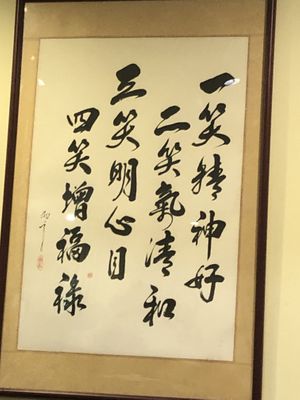 一笑精神好
二笑氣清和
三笑明心目
四笑增福祿